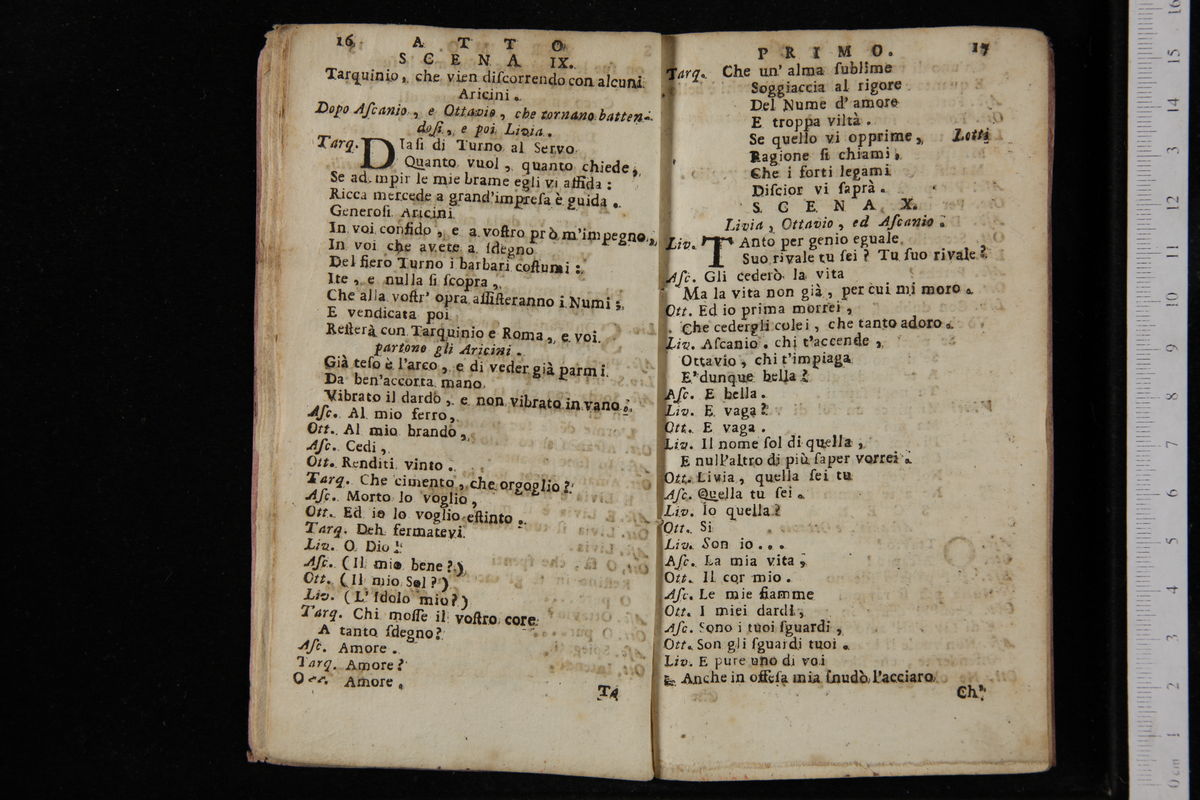 16 A T T O
S C E N A IX.
Tarquinio, che vien diſcorrendo con alcuni
Aricini.
Dopo Aſcanio, e Ottavio, che tornano batten-
doſi, e poi Livia.
Tarq. DIaſi di Turno al Servo
Quanto vuol, quanto chiede;
Se ad mpir le mie brame egli vi affida:
Ricca mercede a grand'impreſa è guida.
Generoſi Aricini
In voi confido, e a voſtro prò m'impegno,
In voi che avete a ſdegno
Del fiero Turno i barbari coſtumi:
Ite, e nulla ſi ſcopra,
Che alla voſtr' opra aſſiſteranno i Numi;
E vendicata poi
Reſterà con Tarquinio e Roma, e voi.
partono gli Aricini.
Già teſo è l'arco, e di veder già parmi
Da ben'accorta mano
Vibrato il dardo, e non vibrato in vano.
Aſc. Al mio ferro,
Ott. Al mio brando,
Aſc. Cedi,
Ott. Renditi vinto.
Tarq. Che cimento, che orgoglio?
Aſc. Morto lo voglio,
Ott. Ed io lo voglio eſtinto.
Tarq. Deh fermatevi.
Liv. O Dio!
Aſc. (Il mio bene?)
Ott. (Il mio Sol?)
Liv. (L' Idolo mio?)
Tarq. Chi moſſe il voſtro core
A tanto ſdegno?
Aſc. Amore.
Tarq. Amore?
Ott. Amore.
Ta
P R I M O. 17
Tarq. Che un' alma ſublime
Soggiaccia al rigore
Del Nume d' amore
E troppa viltà.
Se quello vi opprime, Lotti
Ragione ſi chiami,
Che i forti legami
Diſcior vi ſaprà.
S C E N A X.
Livia, Ottavio, ed Aſcanio.
Liv. TAnto per genio eguale
Suo rivale tu ſei? Tu ſuo rivale?
Aſc. Gli cederò la vita
Ma la vita non già, per cui mi moro.
Ott. Ed io prima morrei,
Che cedergli colei, che tanto adoro.
Liv. Aſcanio. chi t'accende,
Ottavio, chi t'impiaga
E' dunque bella?
Aſc. E bella.
Liv. E vaga?
Ott. E vaga.
Liv. Il nome ſol di quella,
E null'altro di più ſaper vorrei.
Ott. Livia, quella ſei tu
Aſc. Quella tu ſei.
Liv. Io quella?
Ott. Si
Liv. Son io...
Aſc. La mia vita,
Ott. Il cor mio.
Aſc. Le mie fiamme
Ott. I miei dardi,
Aſc. Sono i tuoi ſguardi,
Ott. Son gli ſguardi tuoi.
Liv. E pure uno di voi
Anche in offeſa mia ſnudò l'acciaro
Ch'